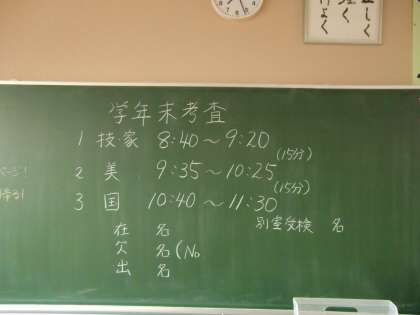 学年末考査
1 技家 8:40～9:20
(15分)
2 美 9:35～10:25
(15分)
3 国 10:40～11:30
別室受検 名
在 名
欠 名(No
出 名